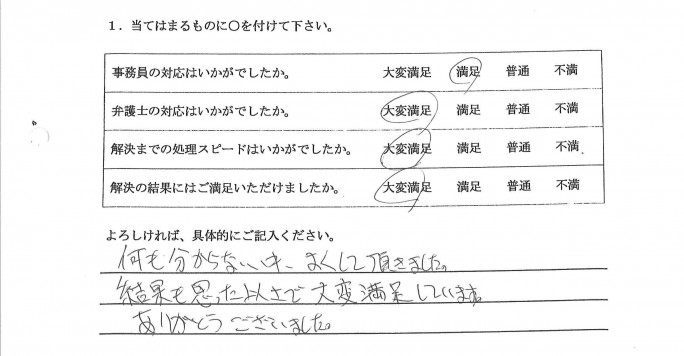 1．当てはまるものに○を付けて下さい。
事務員の対応はいかがでしたか。 大変満足 満足 普通 不満
弁護士の対応はいかがでしたか。 大変満足 満足 普通 不満
解決までの処理スピードはいかがでしたか。 大変満足 満足 普通 不満
解決の結果にはご満足いただけましたか。 大変満足 満足 普通 不満
よろしければ、具体的にご記入ください。
何も分からない中、よくして頂きました。
結果も思った以上で大変満足しています。
ありがとうございました。